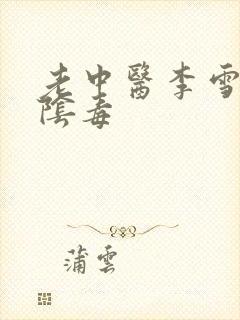 老中醫李雪
陰毒
蒲雲